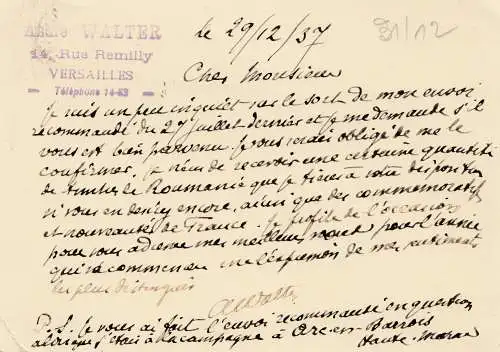 André WALTER
14, Rue Remilly
VERSAILLES
Téléphone 14-63
le 29/12/37
31/12
Cher Monsieur
Je suis un peu inquiet sur le sort de mon envoi
recommandé du 27 juillet dernier et je me demande s'il
vous est bien parvenu. Je vous serais obligé de me le
confirmer. Je viens de recevoir une certaine quantité
de timbres de Roumanie que je tiens à votre disposition
si vous en desirez encore, ainsi que des commemoratifs
et nouveautés de France. Je profite de l'occasion
pour vous adresser mes meilleurs vœux pour l'année
qui va commencer et l'expression de mes sentiments
les plus distingués
AWalter
P.S. Je vous ai fait l'envoi recommandé en question
alors que j'étais à la campagne à Arc-en-Barrois
Haute-Marne